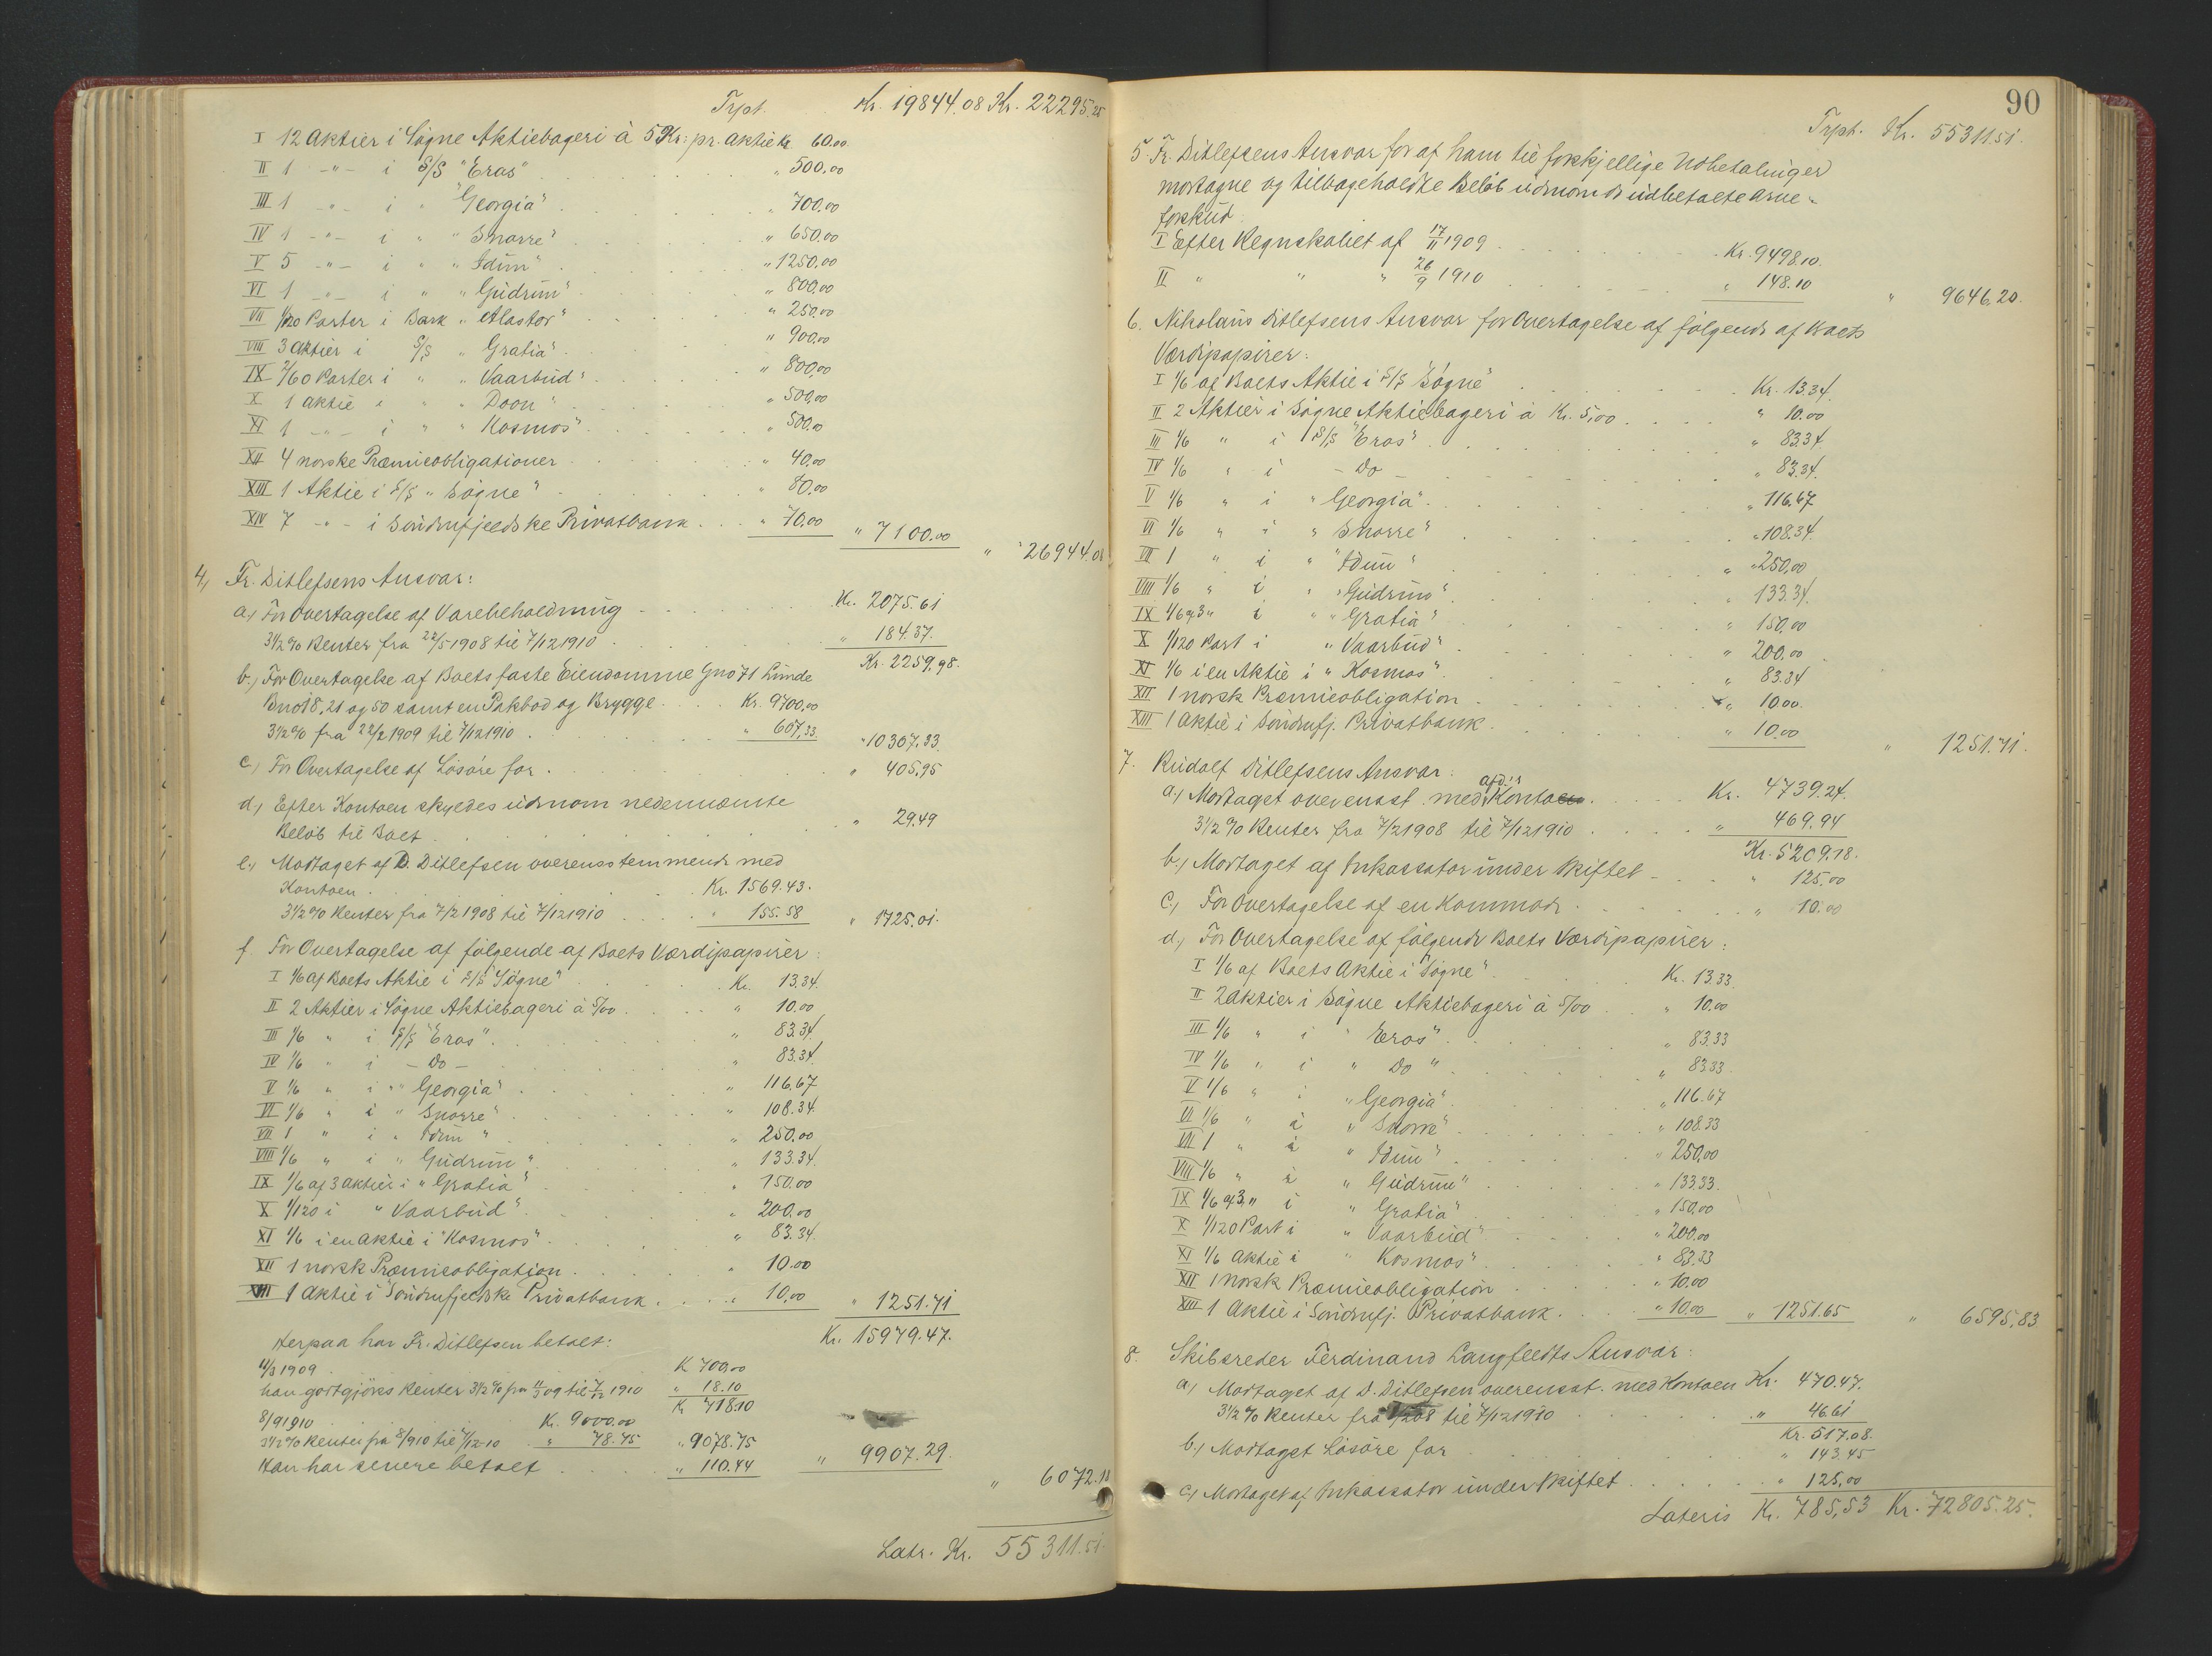 Trpt. Kr. 19844.08 Kr. 22295.25
I 12 Aktier i Sögne Aktiebageri à 5 Kr: pr. Aktie Kr 60.00
II 1 -"- i S/S "Eros" " 500.00
III 1 -"- i " "Georgia" " 700.00
IV 1 -"- i " "Snorre" " 650.00
V 5 -"- i " "Idun" " 1250.00
VI 1 -"- i " "Gudrun" " 800.00
VII 1/120 Parter i Bark "Alastor" " 250.00
VIII 3 Aktier i S/S "Gratia" " 900.00
IX 2/60 Parter i " "Vaarbud" " 800.00
X 1 Aktie i " "Doon" " 500.00
XI 1 -"- i " "Kosmos" " 500.00
XII 4 norske Præmieobligationer " 40.00
XIII 1 Aktie i S/S "Sögne" " 80.00
XIV 7 -"- i Söndenfjeldske Privatbank " 70.00 " 7100.00 " 26944.08
4, Fr. Ditlefsens Ansvar:
a, For Overtagelse af Varebeholdning Kr. 2075.61
3 1/2 % Renter fra 22/5 1908 til 7/12 1910 " 184.37.
Kr. 2259.98.
b., For Overtagelse af Boets faste Eiendomme Gno 71 Lunde
Bno 18, 21 og 50 samt en Pakbod og Brygge Kr. 9700.00
3 1/2 % fra 22/2 1909 til 7/12 1910 " 607,33. " 10307.33
c, For Overtagelse af Lösöre for " 405.95
d, Efter Kontoen skyldes udenom nedennævnte
Belöb til Boet " 29.49
e., Modtaget af D. Ditlefsen overensstemmende med
Kontoen Kr. 1569.43.
3 1/2 % Renter fra 7/2 1908 til 7/12 1910 " 155.58 " 1725.01.
f. For Overtagelse af fölgende af Boets Værdipapirer:
I 1/6 af Boets Aktie i S/S "Sögne" Kr. 13.34.
II 2 Aktier i Sögne Aktiebageri à 5/00 " 10.00
III 1/6 " i S/S "Eros" " 83.34
IV 1/6 " i - Do - " 83.34.
V 1/6 " i " "Georgia" " 116.67
VI 1/6 " i " Snorre" " 108.34
VII 1 " i " Idun " " 250.00
VIII 1/6 " i " Gudrun " " 133.34.
IX 1/6 af 3 Aktier i " Gratia" " 150.00
X 1/120 i " Vaarbud" " 200.00
XI 1/6 i en Aktie i "Kosmos" " 83.34.
XII 1 norsk Præmieobligation " 10.00
XIII 1 Aktie i Söndenfjeldske Privatbank " 10,00 " 1251.71
Kr. 15979.47.
Herpaa har Fr. Ditlefsen betalt:
11/3 1909 K 700,00
han godtgjöres Renter 3 1/2 % fra 11/3 09 til 7/12 1910 " 18.10
K 718.10
8/9 1910 Kr. 9000.00
3 1/2 % Renter fra 8/9 10 til 7/12-10 " 78.75 " 9078.75
Han har senere betalt " 110.44 " 9907.29. " 6072.18
Latr. Kr. 55311.51.
90
Trpt. Kr. 55311.51.
5. Fr. Ditlefsens Ansvar for af ham til forskjellige Udbetalinger
modtagne og tilbageholdte Belöb udenom de udbetalte Arve-
forskud
I Efter Regnskabet af 17/11 1909 Kr. 9498.10.
II " " " 26/9 1910 " 148.10 " 9646.20.
6. Nikolaus Ditlefsens Ansvar for Overtagelse af fölgende af Boets
Værdipapirer:
I 1/6 af Boets Aktie i S/S "Sögne" Kr. 13.34.
II 2 Aktier i Sögne Aktiebageri à Kr. 5,00 " 10.00
III 1/6 " i S/S "Eros" " 83.34
IV 1/6 " i - Do - " 83.34.
V 1/6 " i "Georgia" " 116.67
VI 1/6 " i " Snorre" " 108.34.
VII 1 " i " "Idun " " 250,00
VIII 1/6 " i " "Gudrun" " 133.34.
IX 1/6 af 3 " i " "Gratia" " 150.00
X 1/120 Part i "Vaarbud" " 200.00
XI 1/6 i en Aktie i " Kosmos" " 83.34
XII 1 norsk Præmieobligation " 10.00.
XIII 1 Aktie i Söndenfj. Privatbank " 10.00 " 1251.71.
7. Rudolf Ditlefsens Ansvar:
a., Modtaget overensst. med Kontoen Kr. 4739.24.
3 1/2 % Renter fra 7/2 1908 til 7/12 1910 " 469.94
Kr. 5209.18.
b., Modtaget af Inkassator under Skiftet " 125.00
c., For Overtagelse af en Kommode " 10.00
d, For Overtagelse af fölgende Boets Værdipapirer:
I 1/6 af Boets Aktie i "Sögne" Kr. 13.33.
II 2 Aktier i Sögne Aktiebageri à 5/00 " 10.00
III 1/6 " i " Eros" " 83.33
IV 1/6 " i " Do " " 83.33.
V 1/6 " i " Georgia" " 116.67
VI 1/6 " i " Snorre" " 108.33
VII 1 " i " Idun" " 250,00
VIII 1/6 " i " Gudrun" " 133.33.
IX 1/6 af 3 " i " Gratia" " 150,00
X 1/120 Part i " Vaarbud" " 200,00
XI 1/6 Aktie i " Kosmos" " 83.33
XII 1 norsk Præmieobligation " 10.00
XIII 1 Aktie i Söndenfj. Privatbank " 10.00 " 1251.65 " 6595.83
8. Skibsreder Ferdinand Langfeldts Ansvar:
a, Modtaget af D. Ditlefsen overensst. med Kontoen Kr. 470.47.
3 1/2 % Renter fra til 7/12 1910 " 46.61
Kr. 517.08.
b., Modtaget Lösöre for " 143.45
c, Modtaget af Inkassator under Skiftet " 125,00
Lateris Kr. 785,53 Kr. 72805.25.